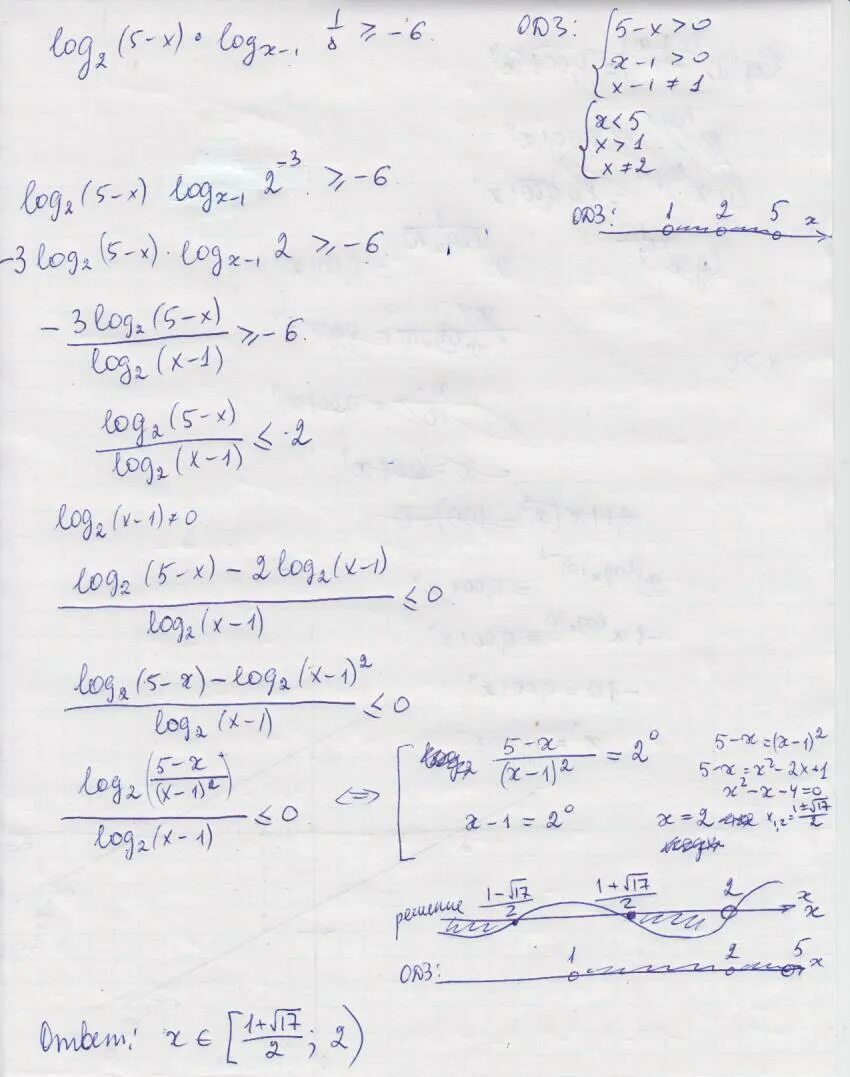 log₂(5-x) · log_{x-1} 1/8 ≥ -6
ОДЗ: { 5-x > 0
x-1 > 0
x-1 ≠ 1
{ x < 5
x > 1
x ≠ 2
ОДЗ: 1 2 5 x
log₂(5-x) log_{x-1} 2⁻³ ≥ -6
-3 log₂(5-x) · log_{x-1} 2 ≥ -6
- 3log₂(5-x) / log₂(x-1) ≥ -6
log₂(5-x) / log₂(x-1) ≤ 2
log₂(x-1) ≠ 0
(log₂(5-x) - 2log₂(x-1)) / log₂(x-1) ≤ 0
(log₂(5-x) - log₂(x-1)²) / log₂(x-1) ≤ 0
log₂((5-x)/(x-1)²) / log₂(x-1) ≤ 0 <=> [ (5-x)/(x-1)² = 2⁰
x-1 = 2⁰
5-x = (x-1)²
5-x = x² - 2x + 1
x² - x - 4 = 0
x = 2
x₁,₂ = (1±√17)/2
решение (1-√17)/2 (1+√17)/2 2 x
x
ОДЗ: 1 2 5 x
Ответ: x ∈ [(1+√17)/2 ; 2)